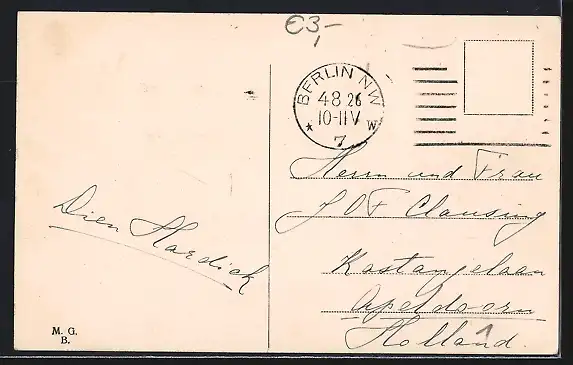 €3,-
BERLIN NW
4 8 26
10-11 V
* 7 W
Herrn und Frau
J O F Clausing
Kastanjelaan
Apeldoorn
Holland.
Dien Hardick
M. G.
B.